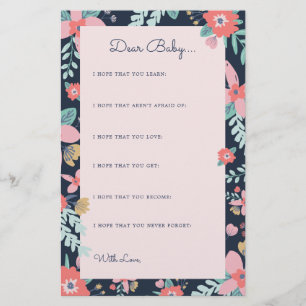 Dear Baby....
I HOPE THAT YOU LEARN:
I HOPE THAT AREN'T AFRAID OF:
I HOPE THAT YOU LOVE:
I HOPE THAT YOU GET:
I HOPE THAT YOU BECOME:
I HOPE THAT YOU NEVER FORGET:
With Love,